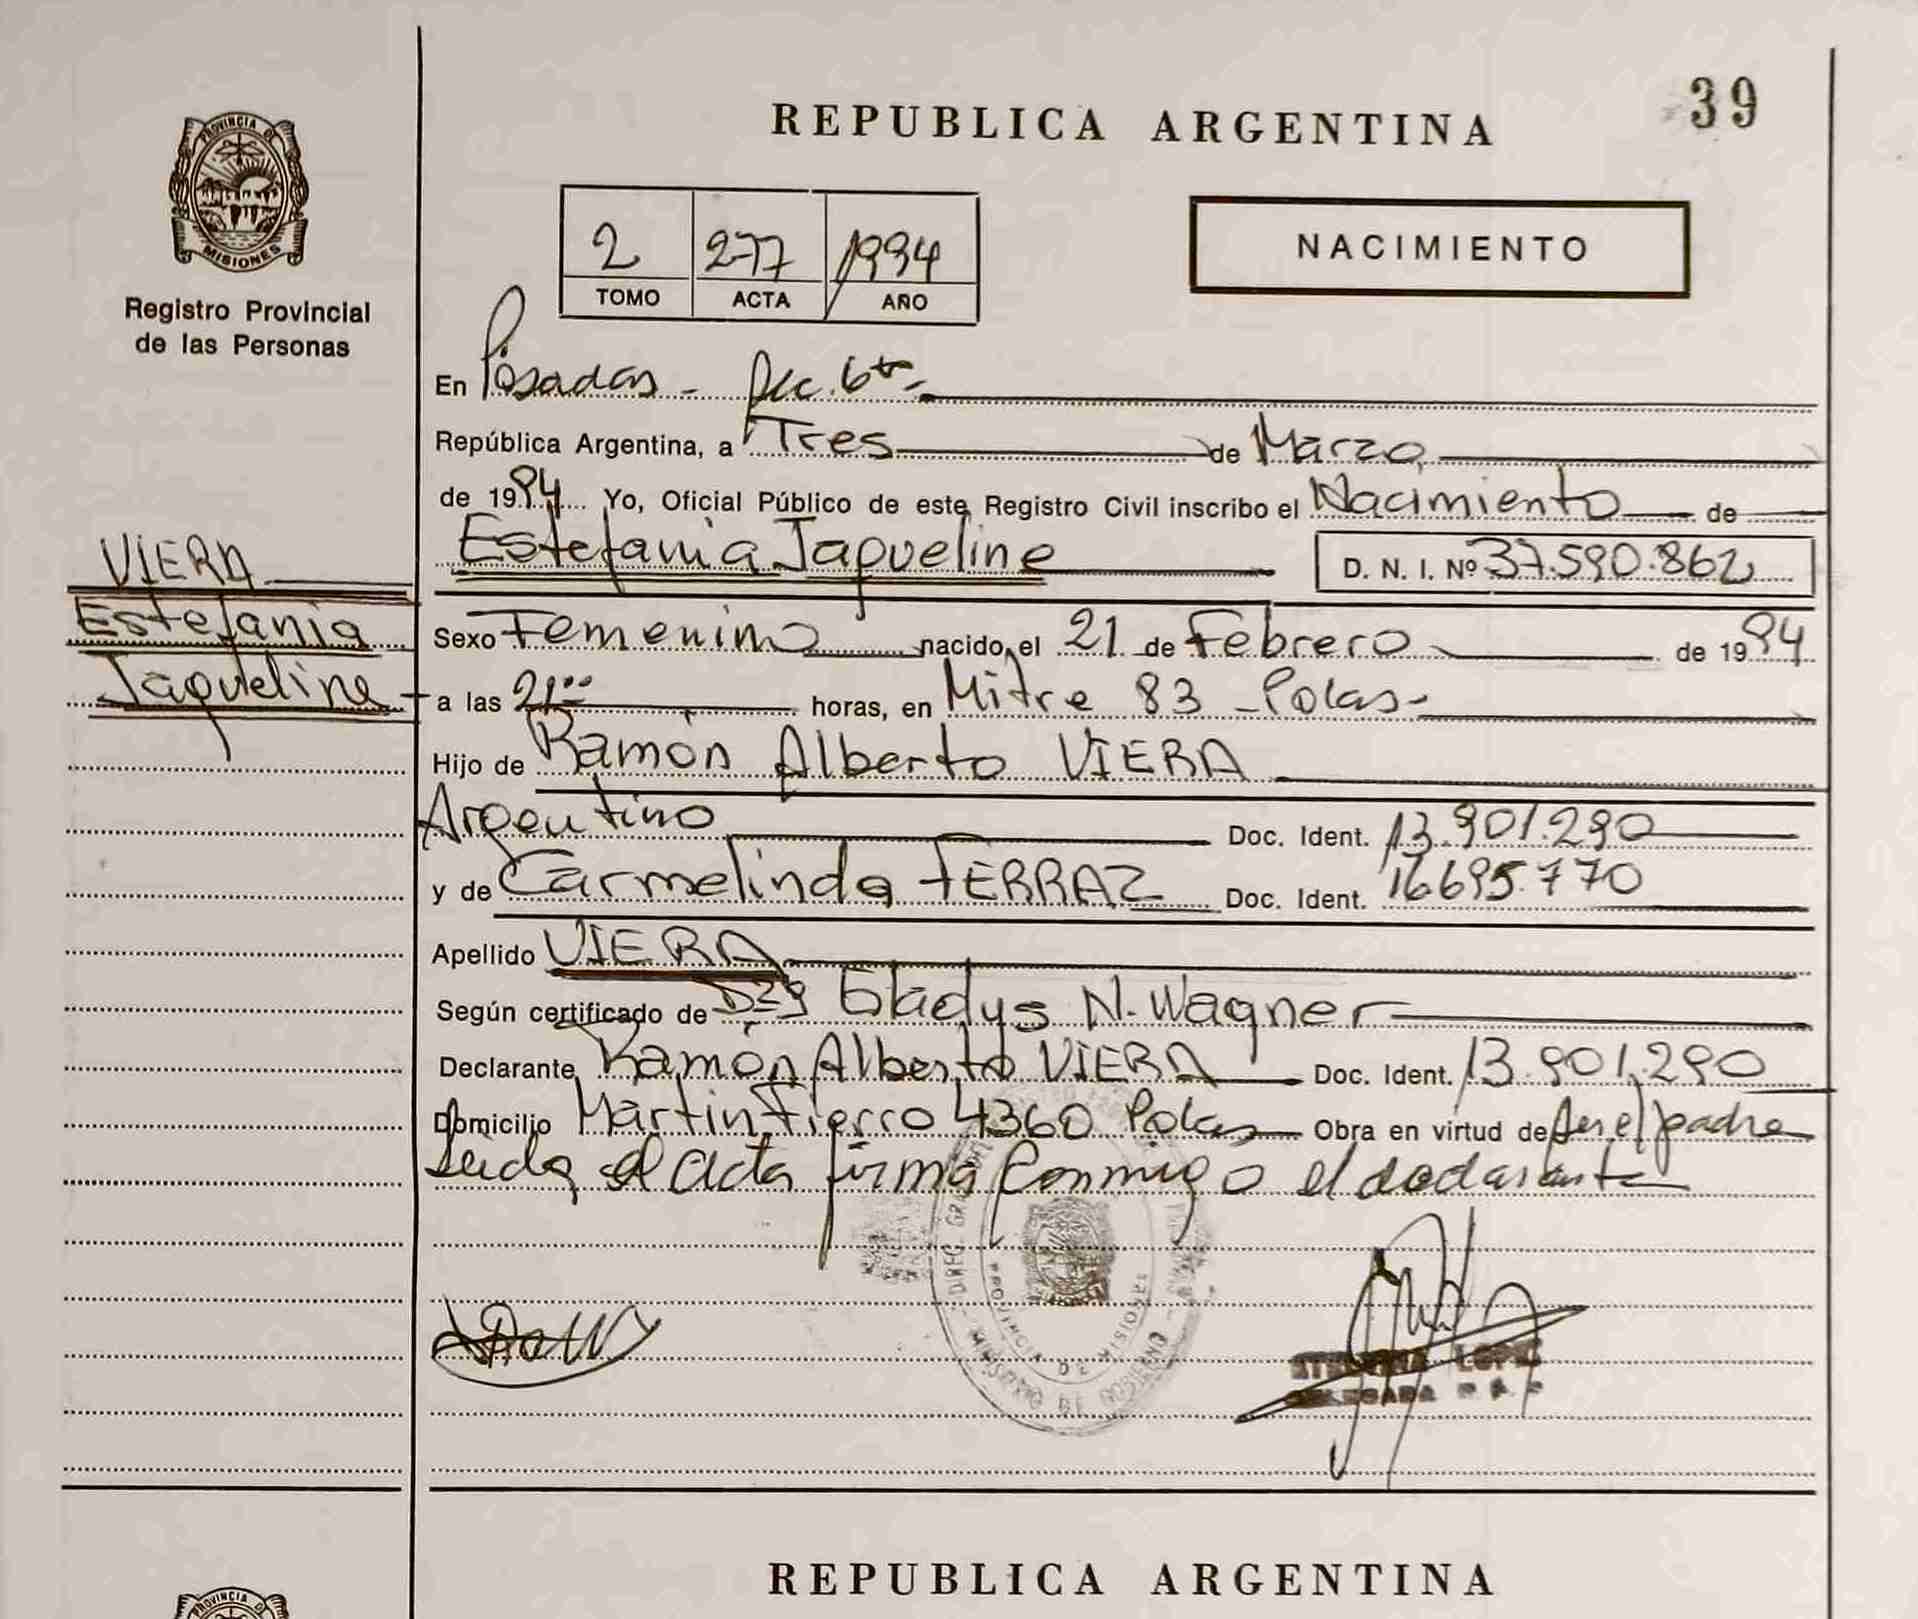 39
REPUBLICA ARGENTINA
PROVINCIA DE
MISIONES
Registro Provincial
de las Personas
2 277 1994
TOMO ACTA AÑO
NACIMIENTO
En Posadas - Sec. 6ta -
República Argentina, a Tres de Marzo
de 1994 Yo, Oficial Público de este Registro Civil inscribo el Nacimiento de
VIERA
Estefania
Jaqueline
Estefania Jaqueline D. N. I. Nº 37.590.862
Sexo Femenino nacido el 21 de Febrero de 1994
a las 21 00 horas, en Mitre 83 - Pdas -
Hijo de Ramón Alberto VIERA
Argentino Doc. Ident. 13.901.290
y de Carmelinda FERRAZ Doc. Ident. 16.695.770
Apellido VIERA
Según certificado de Gladys N. Wagner
Declarante Ramón Alberto VIERA Doc. Ident. 13.901.290
Domicilio Martin Fierro 4360 Pdas Obra en virtud de ser el padre
Leida el acta firma conmigo el declarante
PROVINCIA DE MISIONES
MINISTERIO DE GOBIERNO
LOPEZ
DELEGADA R. P. P.
REPUBLICA ARGENTINA
PROVINCIA DE